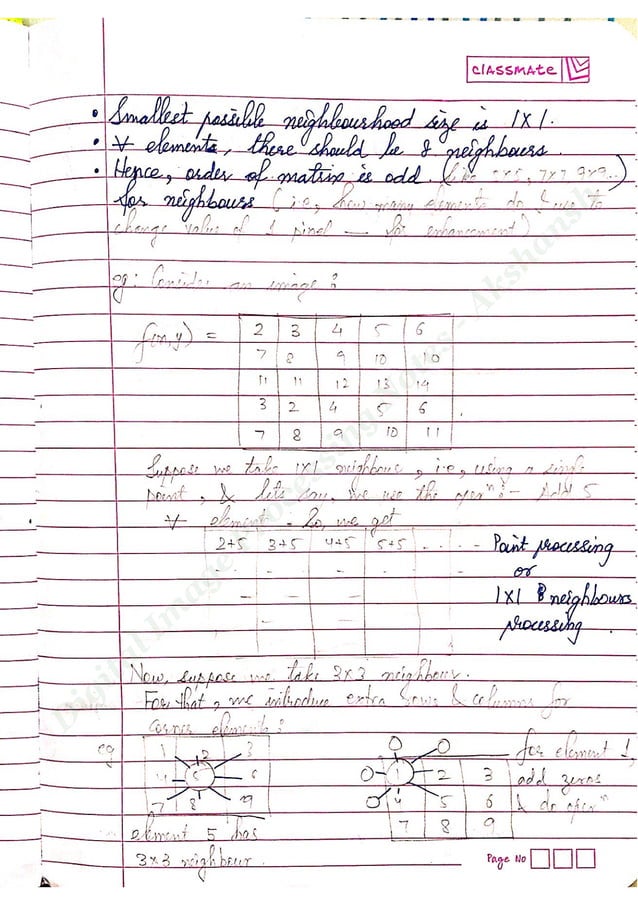 classmate
• Smallest possible neighbourhood size is 1x1.
• ∀ elements, there should be 8 neighbours.
• Hence, order of matrix is odd. (like 5x5, 7x7, 9x9...)
for neighbours (i.e, how many elements do I use to
change value of 1 pixel — for enhancement)
eg: Consider an image:
f(x,y) =
2 3 4 5 6
7 8 9 10 10
11 11 12 13 14
3 2 4 5 6
7 8 9 10 11
Suppose we take 1x1 neighbour, i.e, using a single
point, & let's say, we use the operⁿ :- Add 5
∀ elements. So, we get
2+5 3+5 4+5 5+5 . . . . - Point processing
or
1x1 neighbours
processing.
Now, suppose we take 3x3 neighbour.
For that, we introduce extra rows & columns for
corner elements:
eg
1 2 3
4 5 6
7 8 9
element 5 has
3x3 neighbour.
0 0
0 1 2 3
0 4 5 6
7 8 9
for element 1,
add zeros
& do operⁿ
Page No
Digital Image Processing Notes - Akshansh